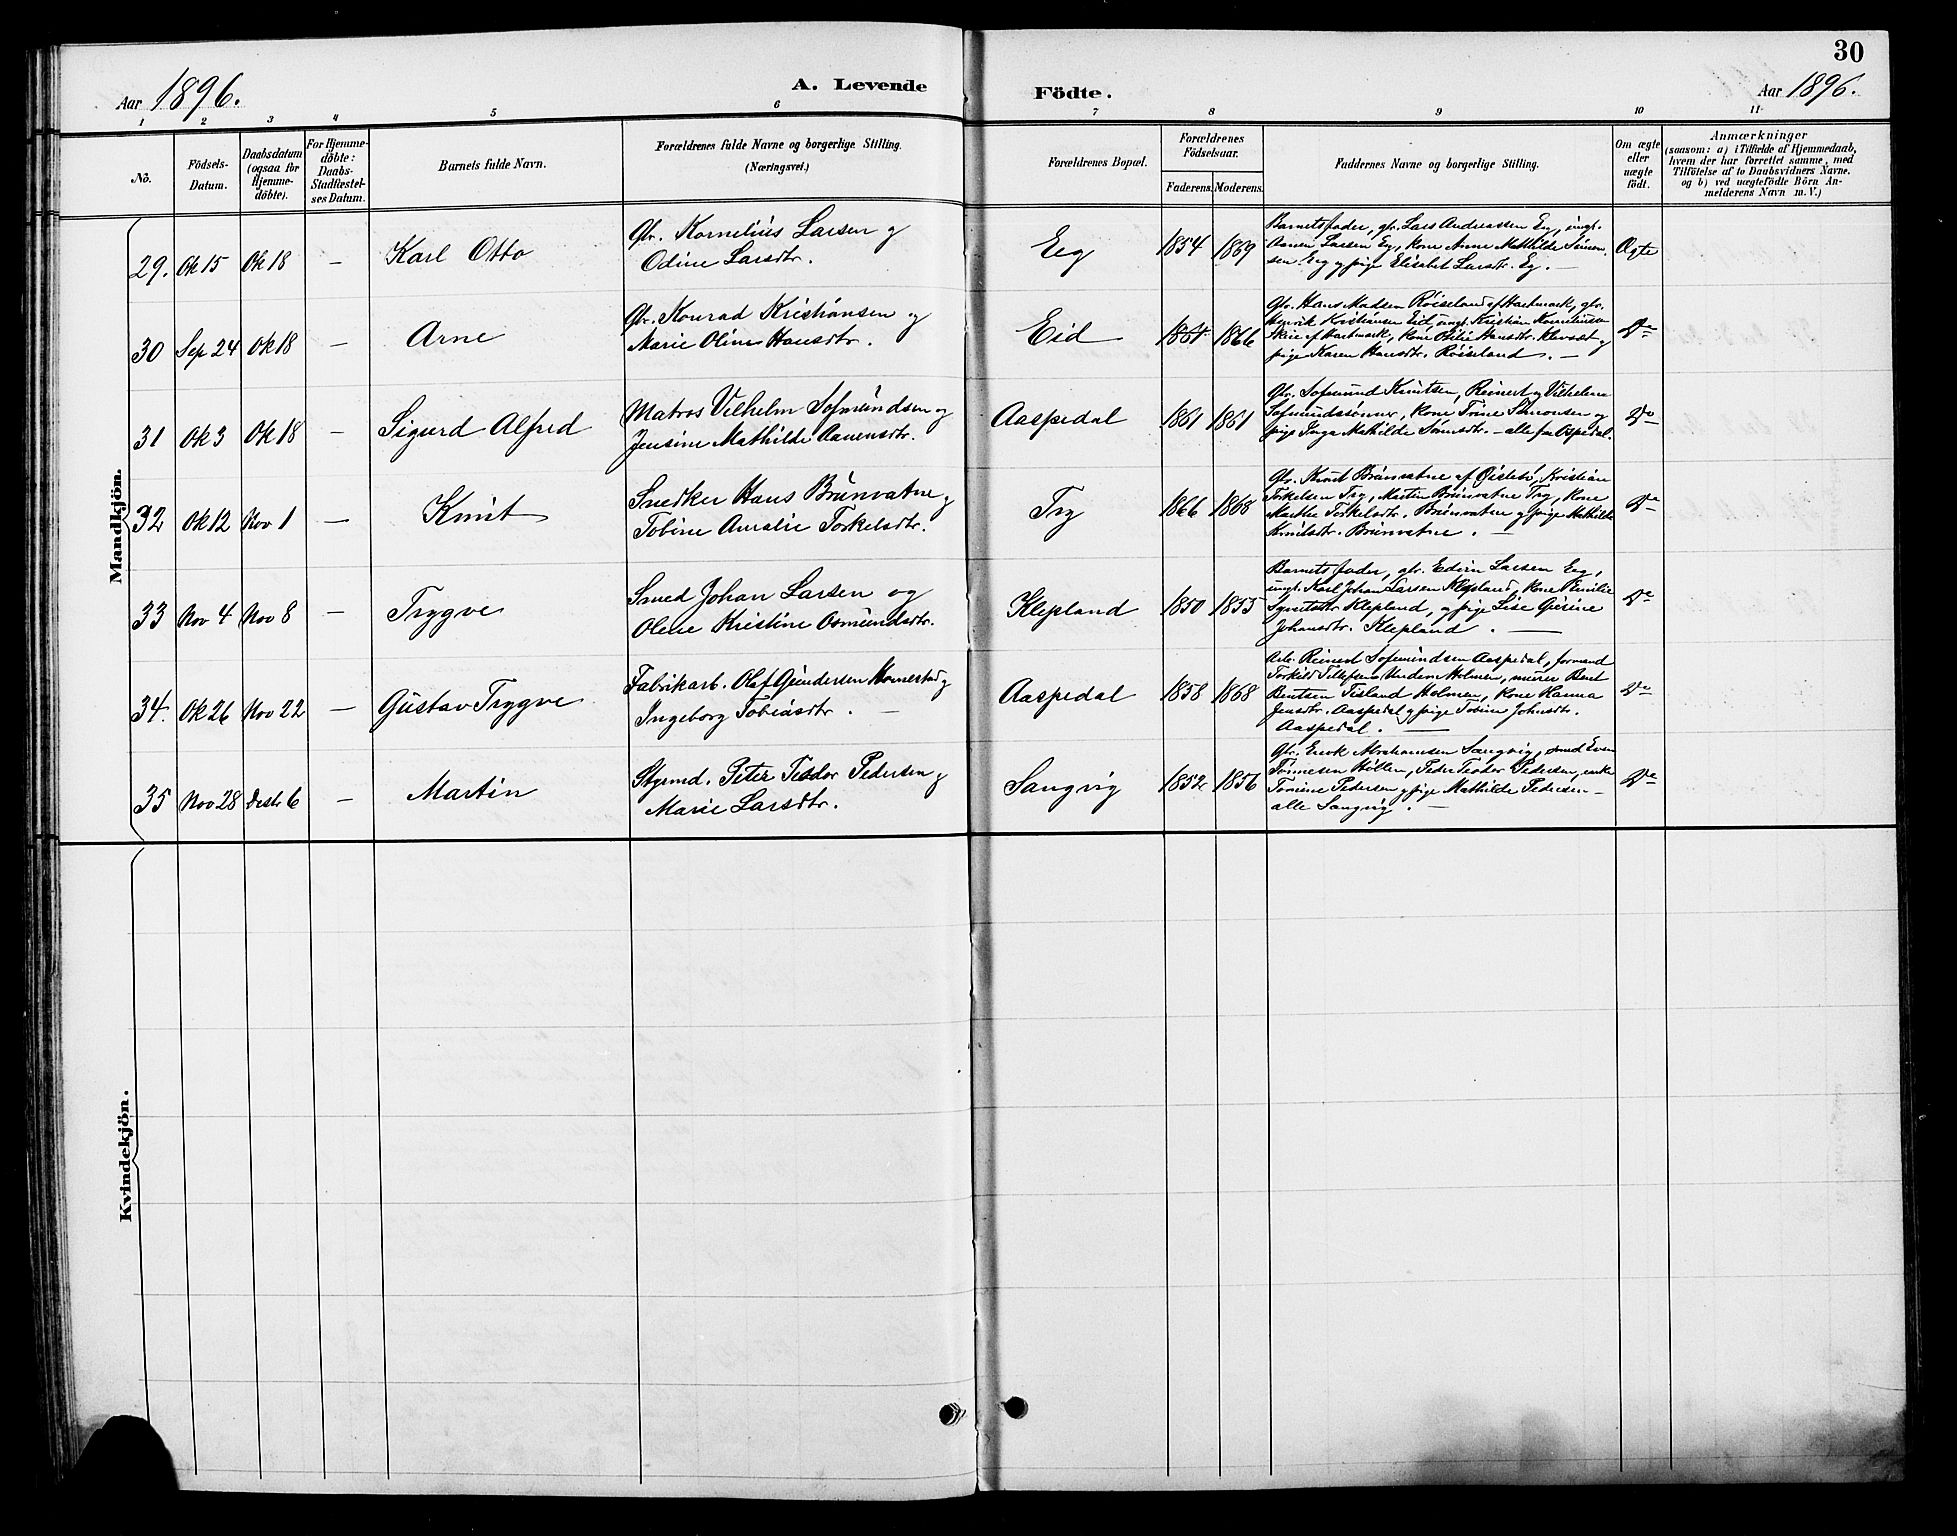 30
Aar 1896.
A. Levende Födte.
Aar 1896.
1 2 3 4 5 6 7 8 9 10 11
No.
Födsels-Datum.
Daabsdatum (ogsaa för Hjemme-döbte).
For Hjemme-döbte: Daabs-Stadfæstel-ses Datum.
Barnets fulde Navn.
Forældrenes fulde Navne og borgerlige Stilling.
(Næringsvei.)
Forældrenes Bopæl.
Forældrenes Födselsaar.
Faderens. Moderens.
Faddernes Navne og borgerlige Stilling.
Om ægte eller uægte födt.
Anmærkninger
(saasom: a) i Tilfælde af Hjemmedaab,
hvem der har forrettet samme, med
Tilföielse af to Daabsvidners Navne.
og b) ved uægtefödte Börn An-
melderens Navn m. V.)
Mandkjön.
29. Ok 15 Ok 18 — Karl Otto
Gbr. Kornelius Larsen og
Odine Larsdtr.
Eeg 1854 1869
Barnets fader, gbr. Lars Andreassen Eg, ungk.
Aanen Larsen Eg, kone Anne Mathilde Simon-
sen Eeg og pige Elisabet Larsdtr. Eg. —
Ægte
30 Sep 24 Ok 18 — Arne
Gbr. Konrad Kristiansen og
Marie Oline Hansdtr.
Eid 1861 1866
Gbr. Hans Madsen Röiseland af Hartmark, gbr.
Henrik Kristiansen Eid, ungk. Kristian Korneliussen
af Hartmark, kone Hansdtr. Klevset og
pige Karen Hansdtr. Röiseland. —
Do
31 Ok 3 Ok 18 — Sigurd Alfred
Matros Vilhelm Sofmundsen og
Jensine Mathilde Aanensdtr.
Aaspedal 1861 1861
Gbr. Sofmund Knutsen, Reinert og Vilhelm
Sofmundssönner, kone Trine Simonsen og
pige Inga Mathilde — alle fra Aspedal.
Do
32 Ok 12 Nov 1 — Knut
Snedker Hans Brunvatne og
Tobine Amalie Torkelsdtr.
Try 1866 1868
Gbr. Knut Brunvatne af Öislebö, Kristian
Torkelsen Try, Martin Brunvatne Try, kone
Marthe Torkelsdtr. Brunvatne og pige Mathilde
Knutsdtr. Brunvatne. —
Do
33 Nov 4 Nov 8 — Trygve
Smed Johan Larsen og
Olene Kristine Osmundsdtr.
Klepland 1850 1855
Barnets fader, gbr. Edvin Larsen Eeg,
ungk. Karl Johan Larsen Klepland, kone Emilie
Syvertsdtr Klepland, og pige Lise Gösine
Johansdtr. Klepland. —
Do
34. Ok 26 Nov 22 — Gustav Trygve
Fabrikarb. Olaf Gundersen Homestad og
Ingeborg Tobiasdtr. —
Aaspedal 1858 1868
Arb. Reinert Sofmundsen Aaspedal, formand
Torkild Tellefsen Holmen, murer Bent
Bentsen Tisland Holmen, kone Hanna
Jensdtr. Aaspedal og pige Tobine Johnsdtr.
Aaspedal. —
Do
35 Nov 28 Desbr 6 — Martin
Styrmd. Peter Teodor Pedersen og
Marie Larsdtr.
Sangvig 1852 1856
Gbr. Enok Abrahamsen Sangvig, smed Even
Tönnesen Höllen, Peder Teodor Pedersen, enke
Tomine Pedersen og pige Mathilde Pedersen —
alle Sangvig. —
Do
Kvindekjön.